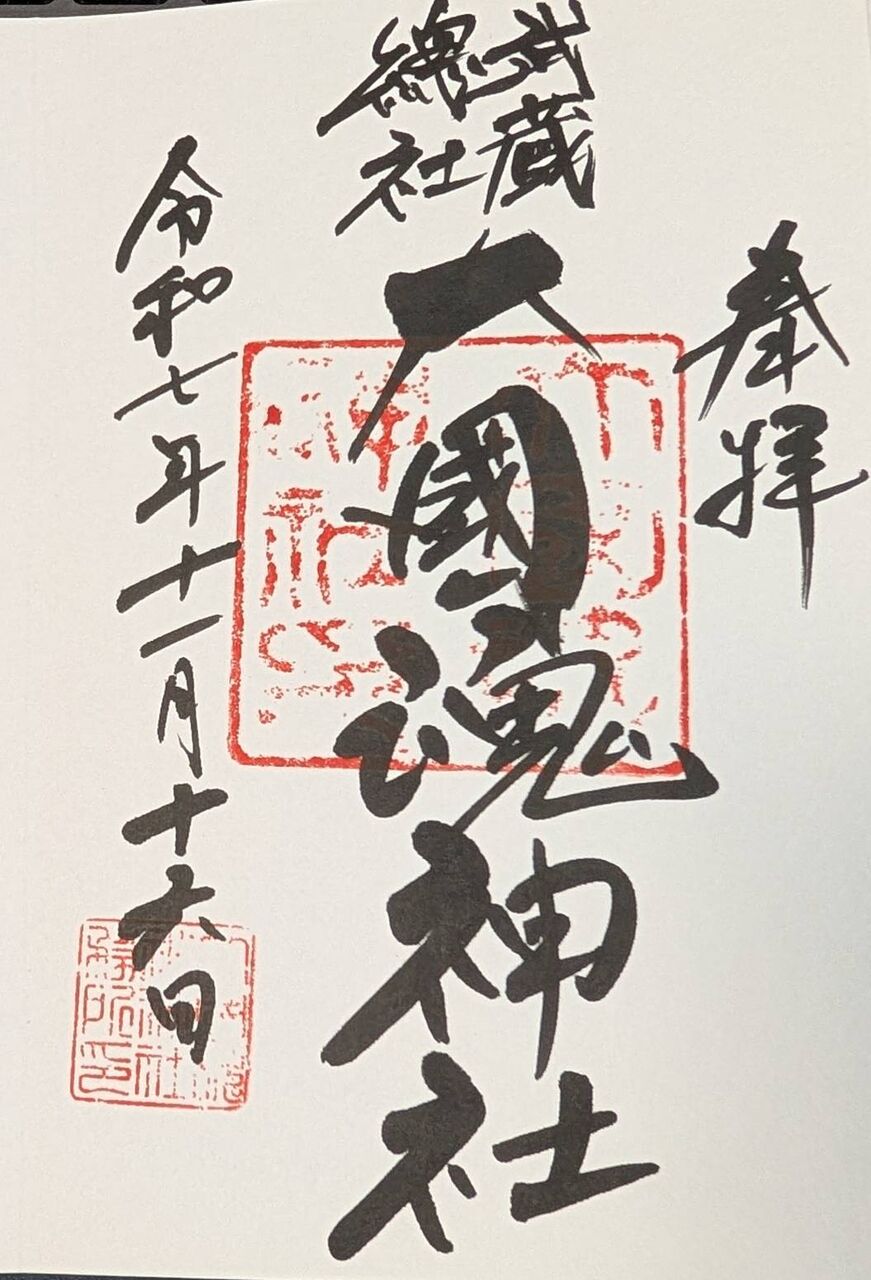 奉拝
武蔵
總社
大國魂神社
令和七年十一月十六日